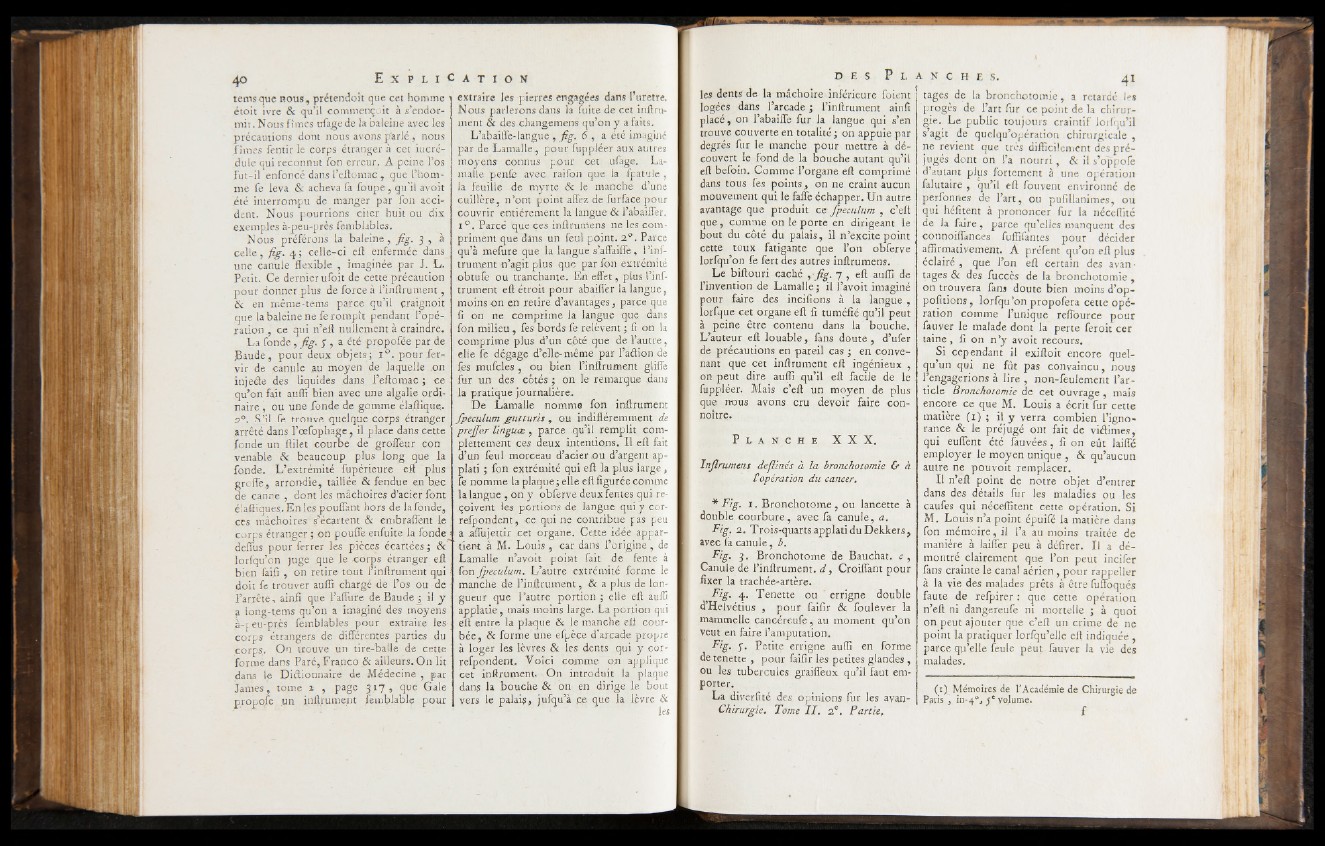 40 EXPLICATION
tems que nous, prétendoit que cet homme
étoit ivre & qu'il commençoit à s'endor-
mir. Nous fîmes usage de la baleine avec les
précautions dont nous avons parlé, nous
fîmes sentir le corps étranger à cet incré-
dule qui reconnut son erreur. A peine l'os
fut-il enfoncé dans l'estomac, que l'hom-
me se leva & acheva sa soupe, qu'il avoit
été interrompu de manger par son acci-
dent. Nous pourrions citer huit ou dix
exemples à-peu-près semblables.
Nous préférons la baleine, fig. 3, à
celle, fig. 4; celle-ci est enfermée dans
une canule flexible, imaginée par J. L.
Petit. Ce dernier usoit de cette précaution
pour donner plus de force à l'instrument,
& en même-tems parce qu'il craignoit
que la baleine ne se rompît pendant l'opé-
ration, ce qui n'est nullement à craindre.
La sonde, fig. 5, a été proposée par de
Baude, pour deux objets; 1°. pour ser-
vir de canule au moyen de laquelle on
injecte des liquides dans l'estomac; ce
qu'on fait aussi bien avec une algalie ordi-
naire, ou une sonde de gomme élastique.
2°. S'il se trouve quelque corps étranger
arrêté dans l'œsophage, il place dans cette
sonde un stilet courbe de grosseur con
venable & beaucoup plus long que la
sonde. L'extrémité supérieure est plus
grosse, arrondie, taillée & fendue en bec
de canne, dont les mâchoires d'acier sont
élastiques. En les poussant hors de la sonde,
ces mâchoires s'écartent & embrassent le
corps étranger; on pousse ensuite la sonde
dessus pour serrer les pièces écartées; &
lorsqu'on juge que le corps étranger est
bien saisi, on retire tout l'instrument qui
doit se trouver aussi chargé de l'os ou de
l'arrête, ainsi que l'assure de Baude; il y
a long-tems qu'on a imaginé des moyens
à-peu-près semblables pour extraire les
corps étrangers de différentes parties du
corps. On trouve un tire-balle de cette
forme dans Paré, Franco & ailleurs. On lit
dans le Dictionnaire de Médecine, par
James, tome 1, page 317, que Gale
propose un instrument semblable pour
extraire les pierres engagées dans l'uretre.
Nous parlerons dans la suite de cet instru-
ment & des changemens qu'on y a faits.
L'abaisse-langue, fig. 6, a été imaginé
par de Lamalle, pour suppléer aux autres
moyens connus pour cet usage. La-
malle pense avec raison que la spatule,
la feuille de myrte & le manche d'une
cuillère, n'ont point assez de surface pour
couvrir entiérement la langue & l'abaisser.
1°. Parce que ces instrumens ne les com-
priment que dans un seul point. 2°. Parce
qu'à mesure que la langue s'affaisse, l'ins-
trument n'agit plus que par son extrémité
obtuse ou tranchante. En effet, plus l'ins-
trument est étroit pour abaisser la langue,
moins on en retire d'avantages, parce que
si on ne comprime la langue que dans
son milieu, ses bords se relèvent; si on la
comprime plus d'un côté que de l'autre,
elle se dégage d'elle-même par l'action de
ses muscles, ou bien l'instrument glisse
sur un des côtés; on le remarque dans
la pratique journalière.
De Lamalle nomme son instrument
speculum gutturis, ou indifféremment de
presser linguæ, parce qu'il remplit com-
plettement ces deux intentions. Il est fait
d'un seul morceau d'acier ou d'argent ap-
plati; son extrémité qui est la plus large,
se nomme la plaque; elle est figurée comme
la langue, on y observe deux fentes qui re-
çoivent les portions de langue qui y cor-
respondent, ce qui ne contribue pas peu
a assujettir cet organe. Cette idée appar-
tient à M. Louis, car dans l'origine, de
Lamalle n'avoit point fait de fente à
son speculum. L'autre extrémité forme le
manche de l'instrument, & a plus de lon-
gueur que l'autre portion; elle est aussi
applatie, mais moins large. La portion qui
est entre la plaque & le manche est cour-
bée, & forme une espèce d'arcade propre
à loger les lèvres & les dents qui y cor-
respondent. Voici comme on applique
cet instrument. On introduit la plaque
dans la bouche & on en dirige le bout
vers le palais, jusqu'à ce que la lèvre &
les
DES PLANCHES. 41
les dents de la mâchoire inférieure soient
logées dans l'arcade; l'instrument ainsi
placé, on l'abaisse sur la langue qui s'en
trouve couverte en totalité; on appuie par
degrés sur le manche pour mettre à dé-
couvert le fond de la bouche autant qu'il
est besoin. Comme l'organe est comprimé
dans tous ses points, on ne craint aucun
mouvement qui le fasse échapper. Un autre
avantage que produit ce speculum, c'est
que, comme on le porte en dirigeant le
bout du côté du palais, il n'excite point
cette toux fatigante que l'on observe
lorsqu'on se sert des autres instrumens.
Le bistouri caché, fig. 7, est aussi de
l'invention de Lamalle; il l'avoit imaginé
pour faire des incisions à la langue,
lorsque cet organe est si tuméfié qu'il peut
à peine être contenu dans la bouche.
L'auteur est louable, sans doute, d'user
de précautions en pareil cas; en conve-
nant que cet instrument est ingénieux,
on peut dire aussi qu'il est facile de le
suppléer. Mais c'est un moyen de plus
que nous avons cru devoir faire con-
noître.
PLANCHE XXX.
Instrumens destinés à la bronchotomie & à
l'opération du cancer.
* Fig. 1. Bronchotome, ou lancette à
double courbure, avec sa canule, a.
Fig. 2. Trois-quarts applati du Dekkers,
avec sa canule, b.
Fig. 3. Bronchotome de Bauchat. c,
Canule de l'instrument. d, Croissant pour
fixer la trachée-artère.
Fig. 4. Tenette ou errigne double
d'Helvétius, pour saisir & soulever la
mammelle cancéreuse, au moment qu'on
veut en faire l'amputation.
Fig. 5. Petite errigne aussi en forme
de tenette, pour saisir les petites glandes,
ou les tubercules graisseux qu'il faut em-
porter.
La diversité des opinions sur les avan-
Chirurgie. Tome II. 2e. Partie.
tages de la bronchotomie, a retardé les
progès de l'art sur ce point de la chirur-
gie. Le public toujours craintif lorsqu'il
s'agit de quelqu'opération chirurgicale,
ne revient que très difficilement des pré-
jugés dont on l'a nourri, & il s'oppose
d'autant plus fortement à une opération
salutaire, qu'il est souvent environné de
personnes de l'art, ou pusillanimes, ou
qui hésitent à prononcer sur la nécessité
de la faire, parce qu'elles manquent des
connoissances suffisantes pour décider
affirmativement. A présent qu'on est plus
éclairé, que l'on est certain des avan-
tages & des succès de la bronchotomie,
on trouvera sans doute bien moins d'op-
positions, lorsqu'on proposera cette opé-
ration comme l'unique ressource pour
sauver le malade dont la perte seroit cer
taine, si on n'y avoit recours.
Si cependant il existoit encore quel-
qu'un qui ne fût pas convaincu, nous
l'engagerions à lire, non-seulement l'ar-
ticle Bronchotomie de cet ouvrage, mais
encore ce que M. Louis a écrit sur cette
matière (1); il y verra combien l'igno-
rance & le préjugé ont fait de victimes,
qui eussent été sauvées, si on eût laissé
employer le moyen unique, & qu'aucun
autre ne pouvoit remplacer.
Il n'est point de notre objet d'entrer
dans des détails sur les maladies ou les
causes qui nécessitent cette opération. Si
M. Louis n'a point épuisé la matière dans
son mémoire, il l'a au moins traitée de
manière à laisser peu à désirer. Il a dé-
montré clairement que l'on peut inciser
sans crainte le canal aérien, pour rappeller
à la vie des malades prêts à être suffoqués
faute de respirer: que cette opération
n'est ni dangereuse ni mortelle; à quoi
on peut ajouter que c'est un crime de ne
point la pratiquer lorsqu'elle est indiquée,
parce qu'elle seule peut sauver la vie des
malades.
(1) Mémoires de l'Académie de Chirurgie de
Paris, in-4°, 5e volume.
f